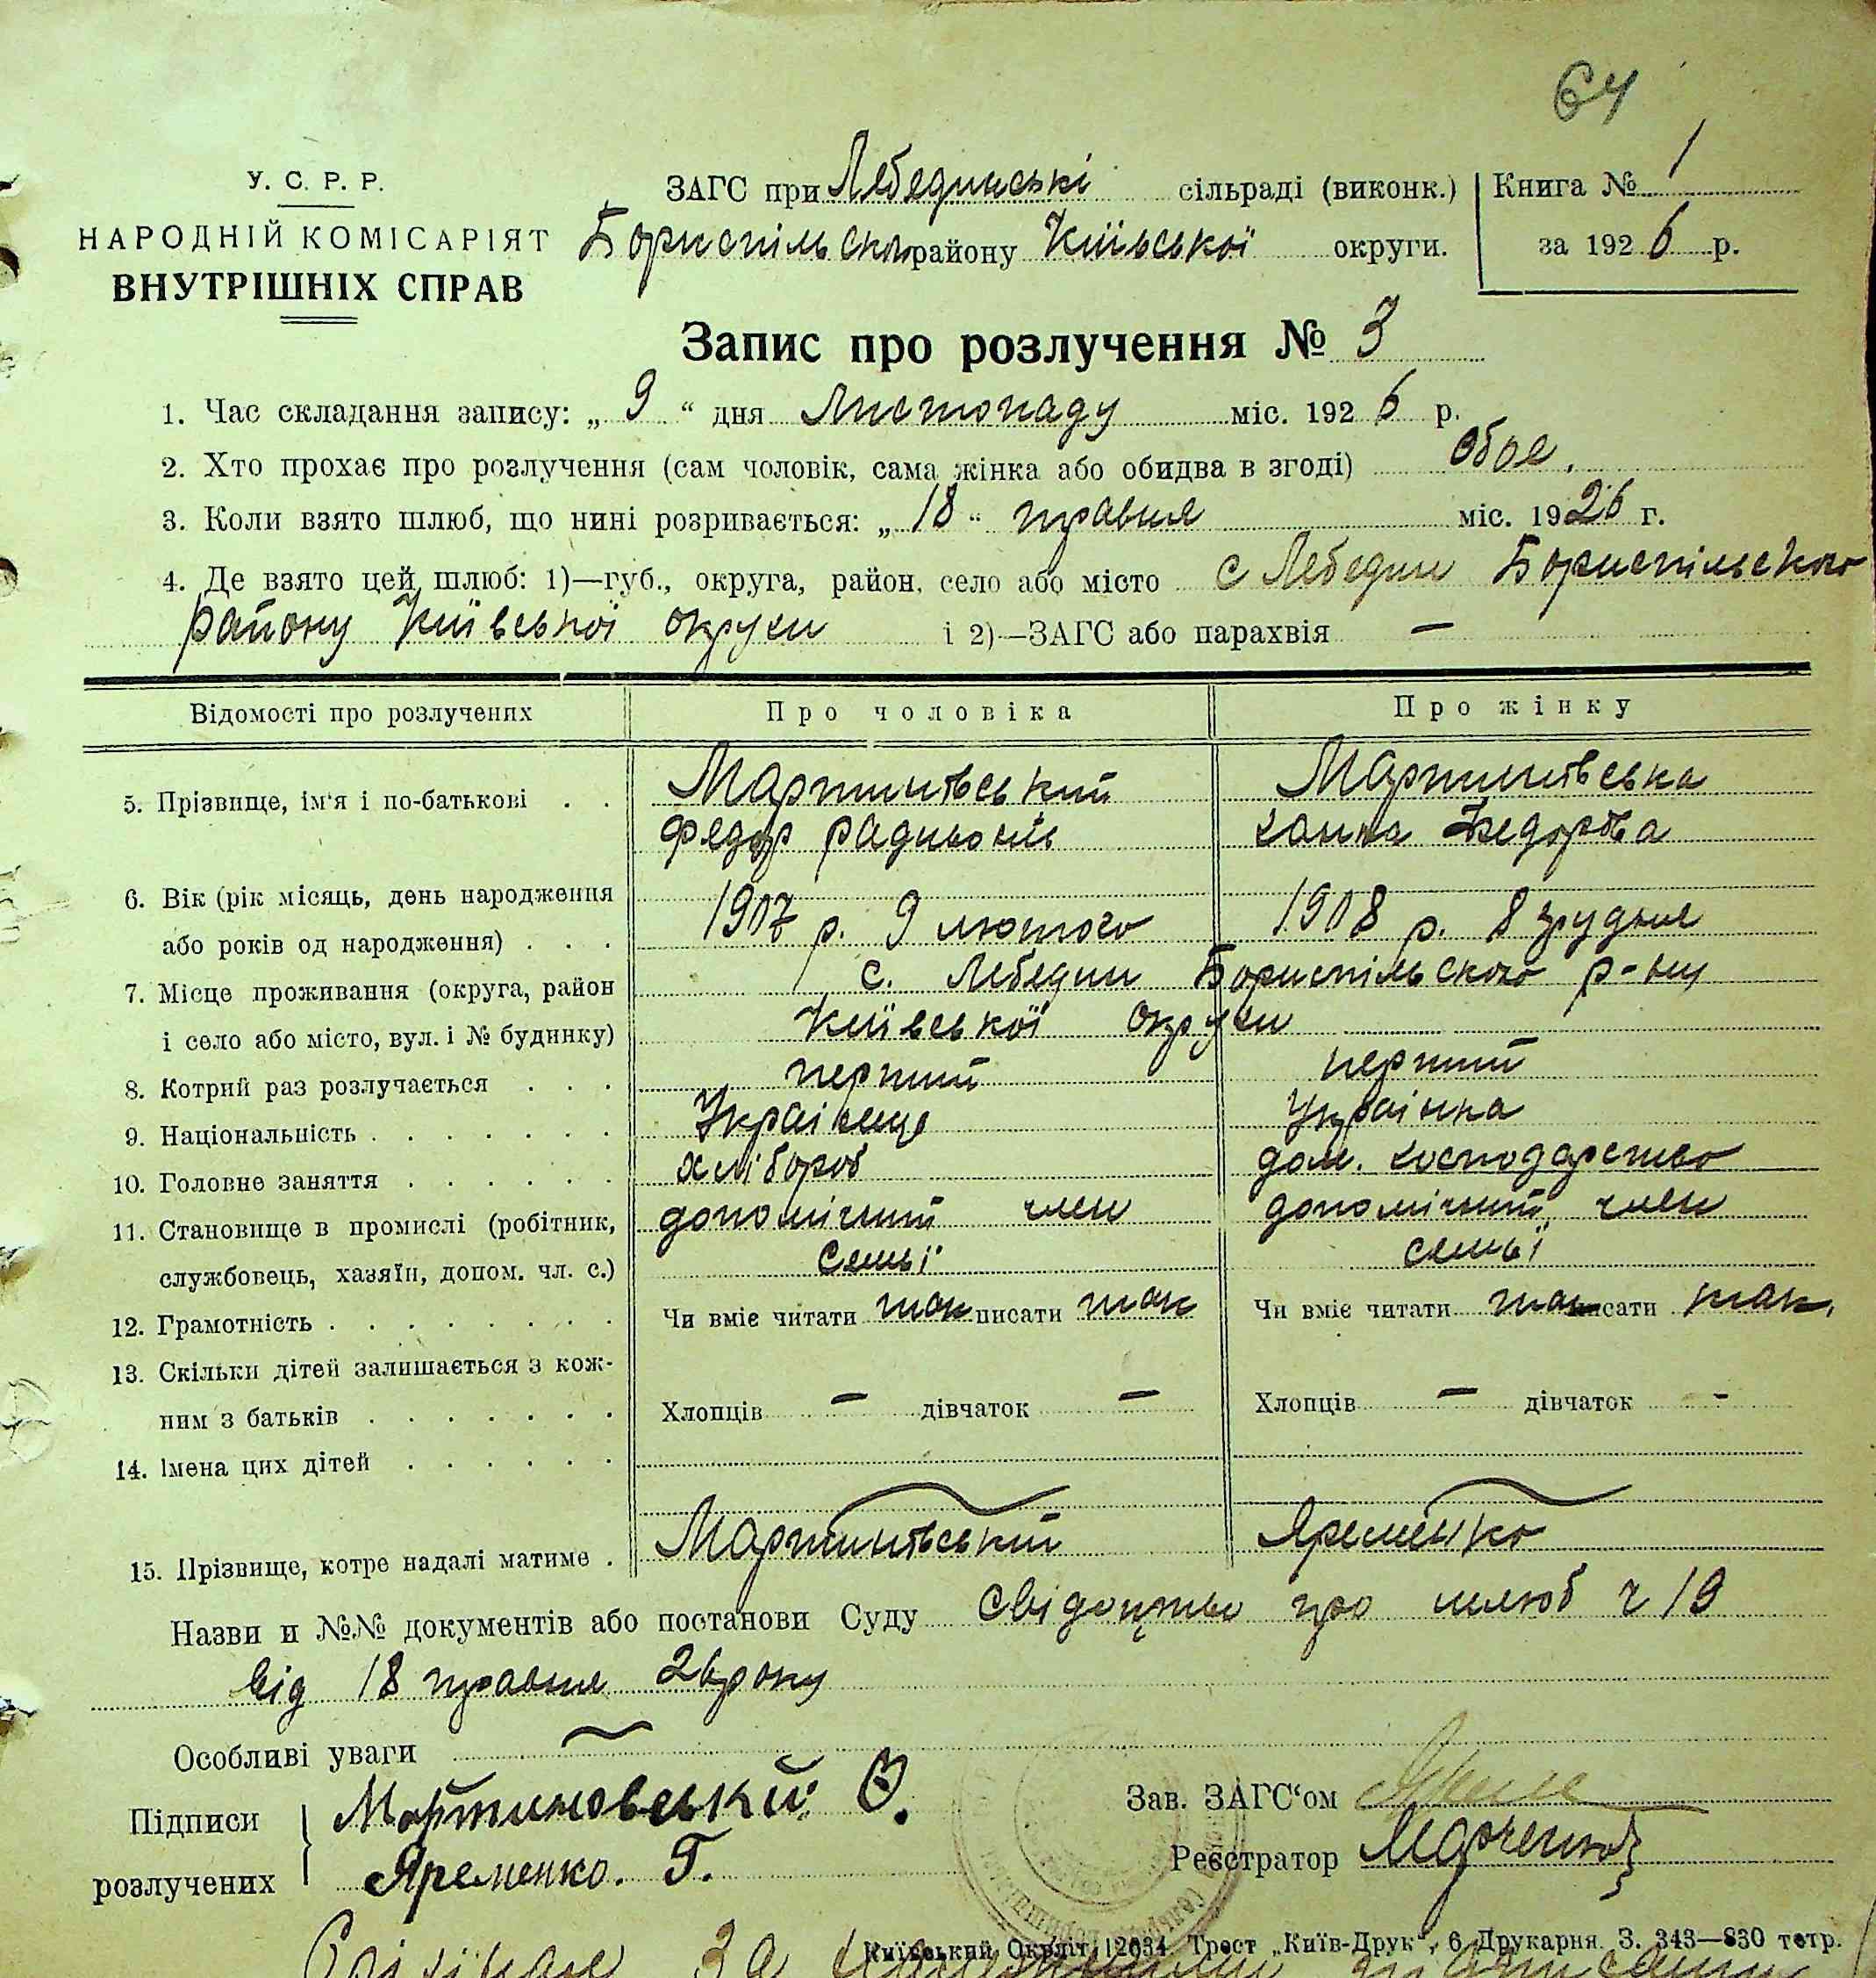 64
У. С. Р. Р.
НАРОДНІЙ КОМІСАРІЯТ
ВНУТРІШНІХ СПРАВ
ЗАГС при Лебединські сільраді (виконк.)
Бориспільськ району Київської округи.
Книга № 1
за 1926 р.
Запис про розлучення № 3
1. Час складання запису: „ 9 “ дня Листопаду міс. 1926 р.
2. Хто прохає про розлучення (сам чоловік, сама жінка або обидва в згоді) обоє.
3. Коли взято шлюб, що нині розривається: „ 18 “ травня міс. 1926 г.
4. Де взято цей шлюб: 1)—губ., округа, район, село або місто с Лебедин Бориспільського
району Київської округи і 2)—ЗАГС або парахвія —
Відомості про розлучених Про чоловіка Про жінку
5. Прізвище, ім'я і по-батькові . . Мартинівський Мартинівська
Федор Радивонів Ганна Федорова
6. Вік (рік місяць, день народження
або років од народження) . . . 1907 р. 9 лютого 1908 р. 8 грудня
7. Місце проживання (округа, район с. Лебедин Бориспільського р-ну
і село або місто, вул. і № будинку) Київської округи
8. Котрий раз розлучається . . . перший перший
9. Національність . . . . . . . Українець Українка
10. Головне заняття . . . . . . хлібороб дом. господарство
11. Становище в промислі (робітник, допомічний член допомічний член
службовець, хазяїн, допом. чл. с.) семьї семьї
12. Грамотність . . . . . . . . Чи вміє читати так писати так Чи вміє читати так писати так,
13. Скільки дітей залишається з кож-
ним з батьків . . . . . . . Хлопців — дівчаток — Хлопців — дівчаток -
14. Імена цих дітей . . . . . .
15. Прізвище, котре надалі матиме . Мартинівський Яременко
Назви и №№ документів або постанови Суду свідоцтво про шлюб ч 19
від 18 травня 26 року
Особливі уваги
Підписи
розлучених
Мартиновський Ф.
Яременко. Г.
Зав. ЗАГС‘ом
Реєстратор Марченко
Київський Окрліт 12034 Трест „Київ-Друк“, 6 Друкарня. З. 343—830 тетр.